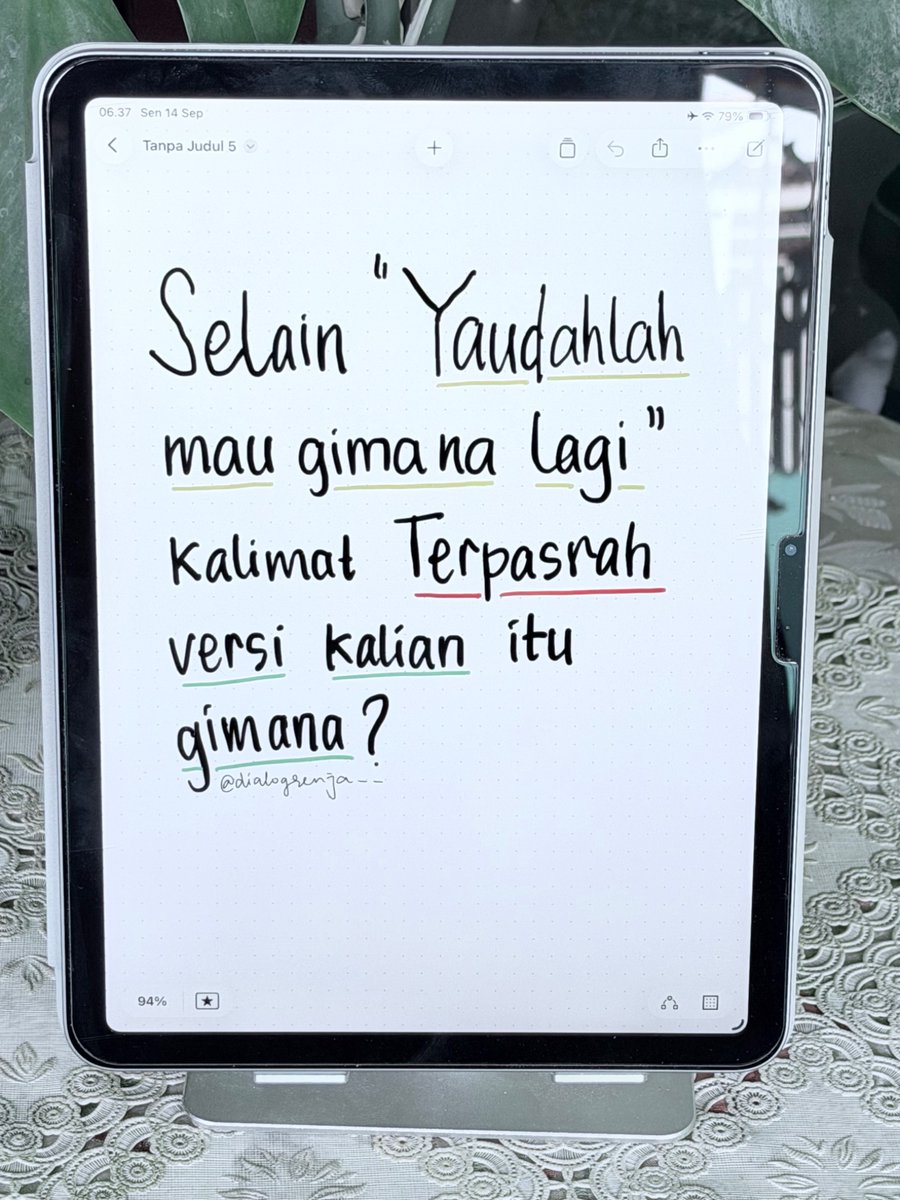 06.37 Sen 14 Sep 79%
Tanpa Judul 5
Selain "Yaudahlah
mau gimana lagi"
kalimat Terpasrah
versi kalian itu
gimana?
@dialogsenja__
94%